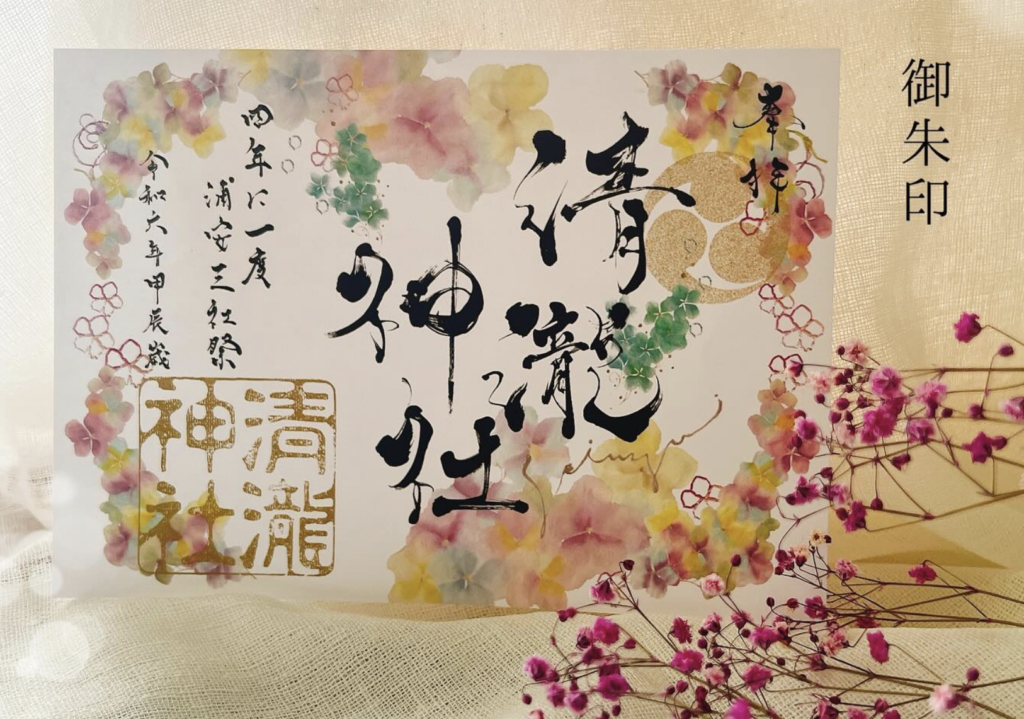 御朱印
奉拝
清瀧
神社
Seiryu
四年に一度
浦安三社祭
令和六年甲辰歳
清瀧
神社